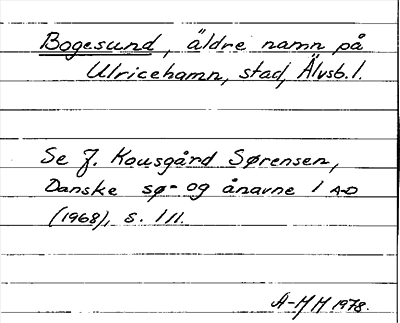 Bogesund, äldre namn på
Ulricehamn, stad, Älvsb. l.
Se J. Kousgård Sørensen,
Danske sø- og ånavne 1 A-D
(1968), s. 111.
A-HH 1978.